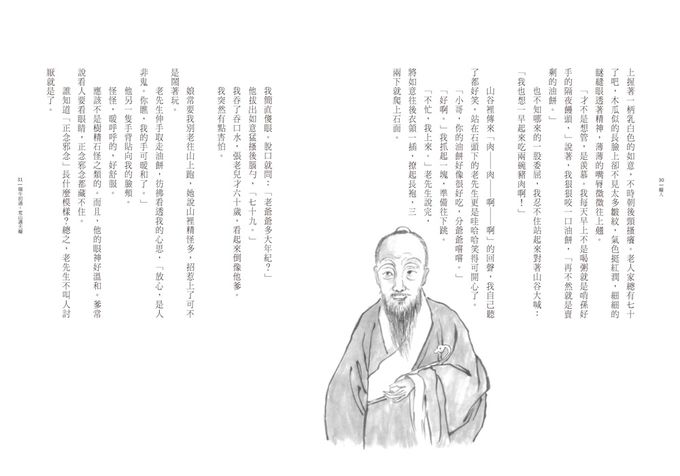 上握著一柄乳白色的如意,不時朝後頸搔癢。老人家總有七十
了吧,木瓜似的長臉上卻不見太多皺紋,氣色挺紅潤,細細的
瞇縫眼透著精神,薄薄的嘴唇微微往上翹。
「才不是想管,是羨慕。我每天早上不是喝粥就是啃孫好
手的隔夜饅頭,」說著,我狠狠咬一口油餅,「再不然就是賣
剩的油餅。」
也不知哪來的一股委屈,我忍不住站起來對著山谷大喊:
「我也想一早起來吃兩碗豬肉啊!」
山谷裡傳來「肉——肉——啊——啊」的回聲,我自己聽
了都好笑,站在石頭下的老先生更是哇哈哈笑得可開心了。
「小哥,你的油餅好像很好吃,分爺爺嚐嚐。」
「好啊。」我抓起一塊,準備往下跳。
「不忙,我上來。」老先生說完,
將如意往後衣領一插,撩起長袍,三
兩下就爬上石面。
我簡直傻眼。脫口就問:「老爺爺多大年紀?」
他拔出如意猛搔後腦勺,「七十九。」
我吞了吞口水,張老兒才六十歲,看起來倒像他爹。
我突然有點害怕。
娘常要我別老往山上跑,她說山裡精怪多,招惹上了可不
是鬧著玩。
老先生伸手取走油餅,彷彿看透我的心思,「放心,是人
非鬼。你瞧,我的手可暖和了。」
他另一隻手背貼向我的臉頰。
怪怪,暖呼呼的,好舒服。
應該不是樹精石怪之類的。而且,他的眼神好溫和。爹常
說看人要看眼睛,正念邪念都藏不住。
誰知道「正念邪念」長什麼模樣?總之,老先生不叫人討
厭就是了。
30
31